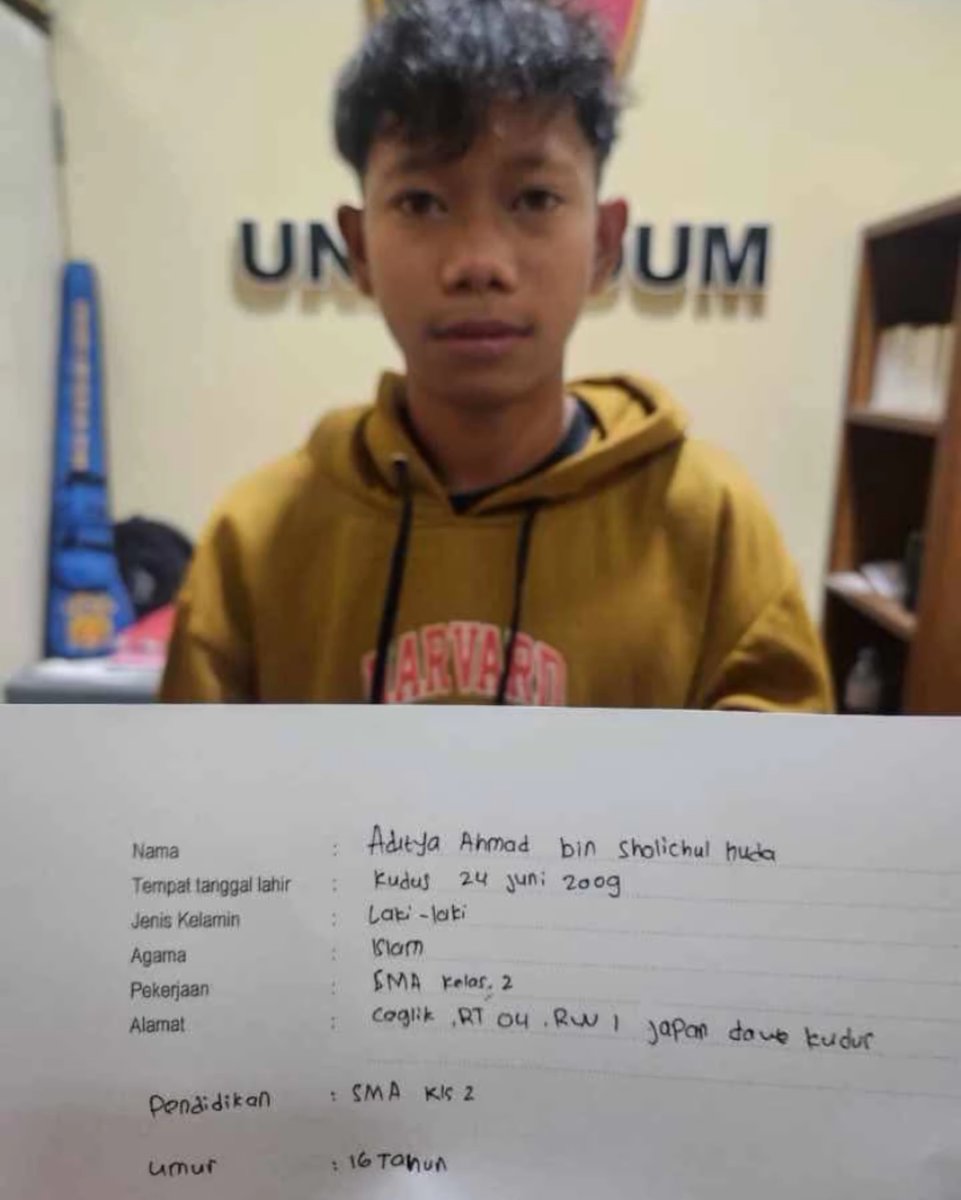 UN UM
HARVARD
Nama : Aditya Ahmad bin Sholichul huda
Tempat tanggal lahir : Kudus 24 juni 2009
Jenis Kelamin : Laki-laki
Agama : Islam
Pekerjaan : SMA kelas. 2
Alamat : Coglik, RT 04. RW 1 Japan dawe kudus
Pendidikan : SMA Kls 2
Umur : 16 Tahun